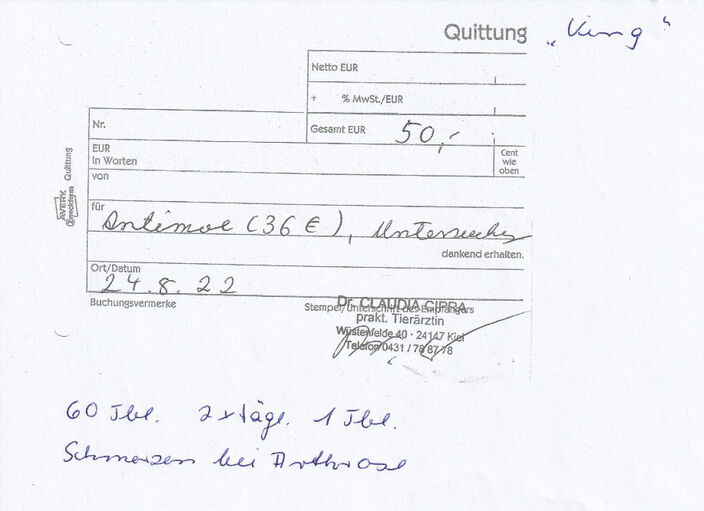 Quittung „King“
Netto EUR
+ % MwSt./EUR
Nr.
Gesamt EUR 50,-
EUR
in Worten
Cent
wie
oben
von
für
Antimoe (36 €), Untersuchg
dankend erhalten.
Ort/Datum
24.8.22
Buchungsvermerke
Stempel/Unterschrift des Empfängers
Dr. CLAUDIA CIPRA
prakt. Tierärztin
Wüstenfelde 40 · 24147 Kiel
Telefon 0431 / 78 87 78
AVERY
Zweckform
Quittung
60 Tbl. 2 x tägl. 1 Tbl.
Schmerzen bei Arthrose